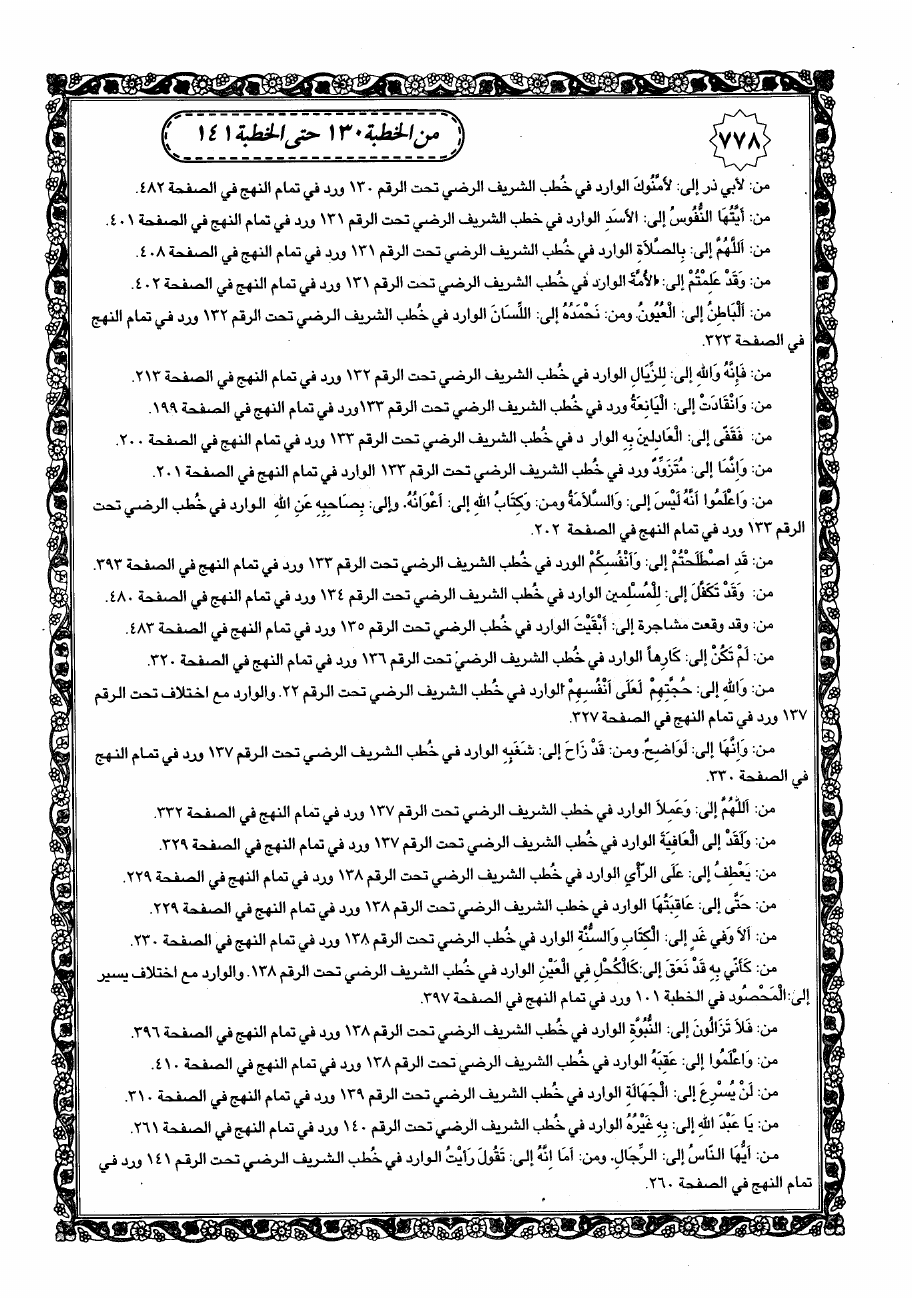 ٧٧٨
من الخطبة ١٣٠ حتى الخطبة ١٤١
من: لأبي ذر إلى: لأَمَّنُوكَ الوارد في خُطب الشريف الرضي تحت الرقم ١٣٠ ورد في تمام النهج في الصفحة ٤٨٢.
من: أَيَّتُهَا النُّفُوسُ إلى: الأَسَدِ الوارد في خطب الشريف الرضي تحت الرقم ١٣١ ورد في تمام النهج في الصفحة ٤٠١.
من: اَللَّهُمَّ إلى: بِالصَّلاَةِ الوارد في خُطب الشريف الرضي تحت الرقم ١٣١ ورد في تمام النهج في الصفحة ٤٠٨.
من: وَقَدْ عَلِمْتُمْ إلى: الأُمَّةَ الوارد في خُطب الشريف الرضي تحت الرقم ١٣١ ورد في تمام النهج في الصفحة ٤٠٢.
من: اَلْبَاطِنُ إلى: الْعُيُونُ. ومن: نَحْمَدُهُ إلى: اللِّسَانَ الوارد في خُطب الشريف الرضي تحت الرقم ١٣٢ ورد في تمام النهج
في الصفحة ٣٢٣.
من: فَإِنَّهُ وَاللهِ إلى: لِلزِّيَالِ الوارد في خُطب الشريف الرضي تحت الرقم ١٣٢ ورد في تمام النهج في الصفحة ٢١٣.
من: وَانْقَادَتْ إلى: الْيَانِعَةُ ورد في خُطب الشريف الرضي تحت الرقم ١٣٣ورد في تمام النهج في الصفحة ١٩٩.
من: فَقَفَّى إلى: الْعَادِلينَ بِهِ الوار د في خُطب الشريف الرضي تحت الرقم ١٣٣ ورد في تمام النهج في الصفحة ٢٠٠.
من: وَإِنَّمَا إلى: مُتَزَوِّدٌ ورد في خُطب الشريف الرضي تحت الرقم ١٣٣ الوارد في تمام النهج في الصفحة ٢٠١.
من: وَاعْلَمُوا أَنَّهُ لَيْسَ إلى: وَالسَّلاَمَةُ ومن: وَكِتَابُ اللهِ إلى: أَعْوَانُهُ. وإلى: بِصَاحِبِهِ عَنِ اللهِ الوارد في خُطب الرضي تحت
الرقم ١٣٣ ورد في تمام النهج في الصفحة ٢٠٢.
من: قَدِ اصْطَلَحْتُمْ إلى: وَأَنْفُسِكُمْ الورد في خُطب الشريف الرضي تحت الرقم ١٣٣ ورد في تمام النهج في الصفحة ٣٩٣.
من: وَقَدْ تَكَفَّلَ إلى: لِلْمُسْلِمين الوارد في خُطب الشريف الرضي تحت الرقم ١٣٤ ورد في تمام النهج في الصفحة ٤٨٠.
من: وقد وقعت مشاجرة إلى: أَبْقَيْتَ الوارد في خُطب الرضي تحت الرقم ١٣٥ ورد في تمام النهج في الصفحة ٤٨٣.
من: لَمْ تَكُنْ إلى: كَارِهاً الوارد في خُطب الشريف الرضي تحت الرقم ١٣٦ ورد في تمام النهج في الصفحة ٣٢٠.
من: وَاللهِ إلى: حُجَّتِهِمْ لَعَلَى أَنْفُسِهِمْ الوارد في خُطب الشريف الرضي تحت الرقم ٢٢. والوارد مع اختلاف تحت الرقم
١٣٧ ورد في تمام النهج في الصفحة ٣٢٧.
من: وَإِنَّهَا إلى: لَوَاضِحٌ. ومن: قَدْ زَاحَ إلى: شَغَبِهِ الوارد في خُطب الشريف الرضي تحت الرقم ١٣٧ ورد في تمام النهج
في الصفحة ٣٣٠.
من: اَللَّهُمَّ إلى: وَعَمِلاَ الوارد في خطب الشريف الرضي تحت الرقم ١٣٧ ورد في تمام النهج في الصفحة ٣٣٢.
من: وَلَقَدْ إلى الْعَافِيَةَ الوارد في خُطب الشريف الرضي تحت الرقم ١٣٧ ورد في تمام النهج في الصفحة ٣٢٩.
من: يَعْطِفُ إلى: عَلَى الرَّأْيِ الوارد في خُطب الشريف الرضي تحت الرقم ١٣٨ ورد في تمام النهج في الصفحة ٢٢٩.
من: حَتَّى إلى: عَاقِبَتُهَا الوارد في خطب الشريف الرضي تحت الرقم ١٣٨ ورد في تمام النهج في الصفحة ٢٢٩.
من: أَلاَ وَفي غَدٍ إلى: الْكِتَابِ وَالسُّنَّةِ الوارد في خُطب الشريف الرضي تحت الرقم ١٣٨ ورد في تمام النهج في الصفحة ٢٣٠.
من: كَأَنّي بِهِ قَدْ نَعَقَ إلى:كَالْكُحْلِ فِي الْعَيْنِ الوارد في خُطب الشريف الرضي تحت الرقم ١٣٨. والوارد مع اختلاف يسير
إلى: الْمَحْصُود في الخطبة ١٠١ ورد في تمام النهج في الصفحة ٣٩٧.
من: فَلاَ تَزَالُونَ إلى: النُّبُوَّةِ الوارد في خُطب الشريف الرضي تحت الرقم ١٣٨ ورد في تمام النهج في الصفحة ٣٩٦.
من: وَاعْلَمُوا إلى: عَقِبَهُ الوارد في خُطب الشريف الرضي تحت الرقم ١٣٨ ورد في تمام النهج في الصفحة ٤١٠.
من: لَنْ يُسْرِعَ إلى: الْجَهَالَةِ الوارد في خُطب الشريف الرضي تحت الرقم ١٣٩ ورد في تمام النهج في الصفحة ٣١٠.
من: يَا عَبْدَ اللهِ إلى: بِهِ غَيْرُهُ الوارد في خُطب الشريف الرضي تحت الرقم ١٤٠ ورد في تمام النهج في الصفحة ٢٦١.
من: أَيُّهَا النَّاسُ إلى: الرِّجَالِ. ومن: أَمَا إِنَّهُ إلى: تَقُولَ رَأَيْتُ الوارد في خُطب الشريف الرضي تحت الرقم ١٤١ ورد في
تمام النهج في الصفحة ٢٦٠.